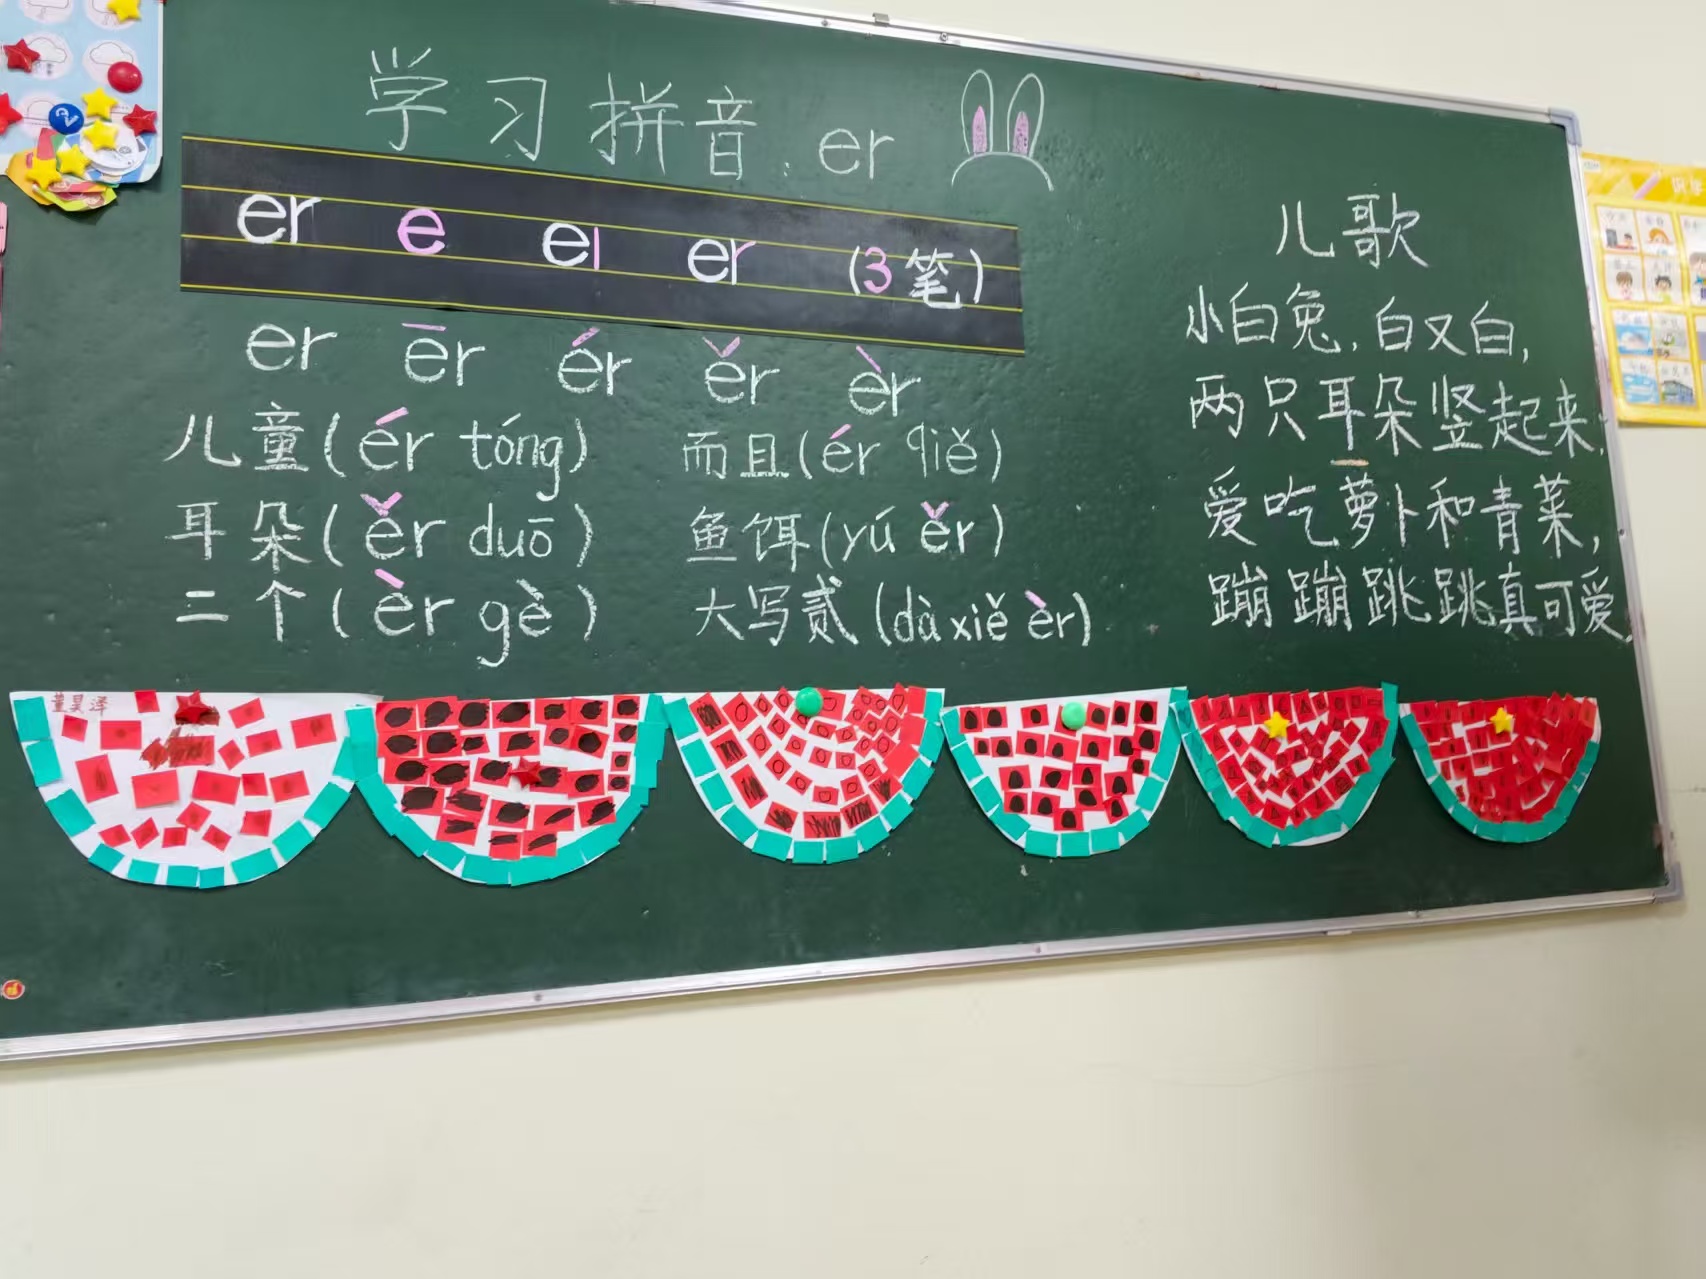 学习拼音:er
er e eı er (3笔)
er ēr ér ěr èr
儿童(ér tóng) 而且(ér qiě)
耳朵(ěr duō) 鱼饵(yú ěr)
二个(èr gè) 大写贰(dà xiě èr)
儿歌
小白兔,白又白,
两只耳朵竖起来,
爱吃萝卜和青菜,
蹦蹦跳跳真可爱.
董昊泽
2